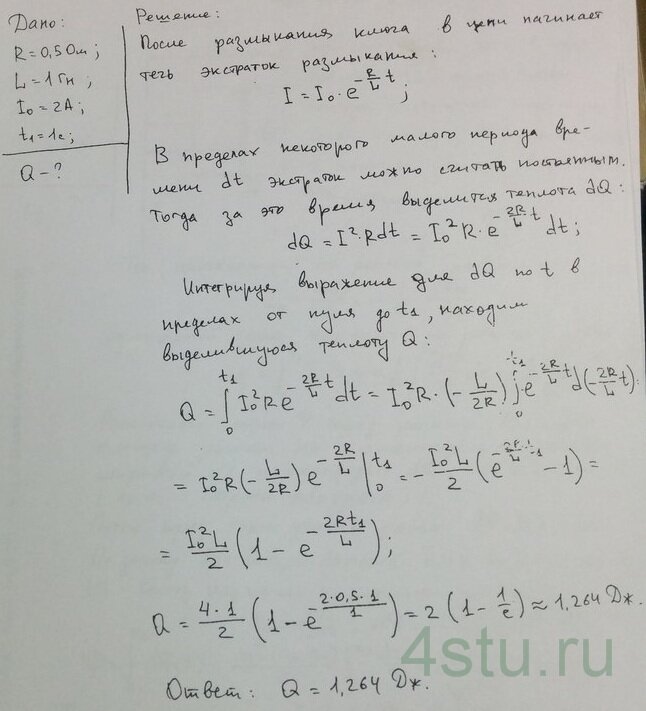 Дано:
R = 0,5 Ом;
L = 1 Гн;
I₀ = 2А;
t₁ = 1с;
Q - ?
Решение:
После размыкания ключа в цепи начинает
течь экстраток размыкания:
I = I₀·e^{-\frac{R}{L}t};
В пределах некоторого малого периода вре-
мени dt экстраток можно считать постоянным.
Тогда за это время выделится теплота dQ:
dQ = I²·Rdt = I₀²R·e^{-\frac{2R}{L}t}dt;
Интегрируя выражение для dQ по t в
пределах от нуля до t₁, находим
выделившуюся теплоту Q:
Q = \int_0^{t₁} I₀²Re^{-\frac{2R}{L}t}dt = I₀²R·(-\frac{L}{2R})\int_0^{t₁}e^{-\frac{2R}{L}t}d(-\frac{2R}{L}t)=
= I₀²R(-\frac{L}{2R})e^{-\frac{2R}{L}}|_0^{t₁} = -\frac{I₀²L}{2}(e^{-\frac{2R}{L}t₁}-1)=
= \frac{I₀²L}{2}(1-e^{-\frac{2Rt₁}{L}});
Q = \frac{4·1}{2}(1-e^{-\frac{2·0,5·1}{1}}) = 2(1-\frac{1}{e}) ≈ 1,264 Дж.
4stu.ru
Ответ: Q = 1,264 Дж.